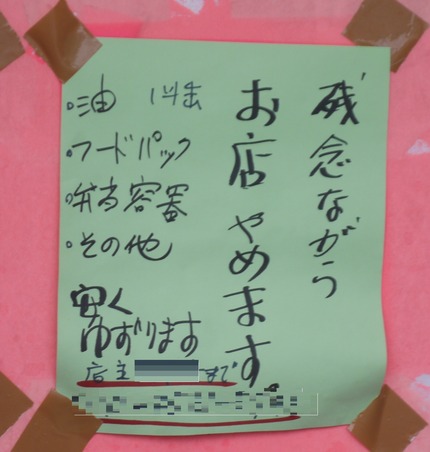 残念ながら
お店やめます
・油 1斗缶
・フードパック
・弁当容器
・その他
安く
ゆずります
店主 まで